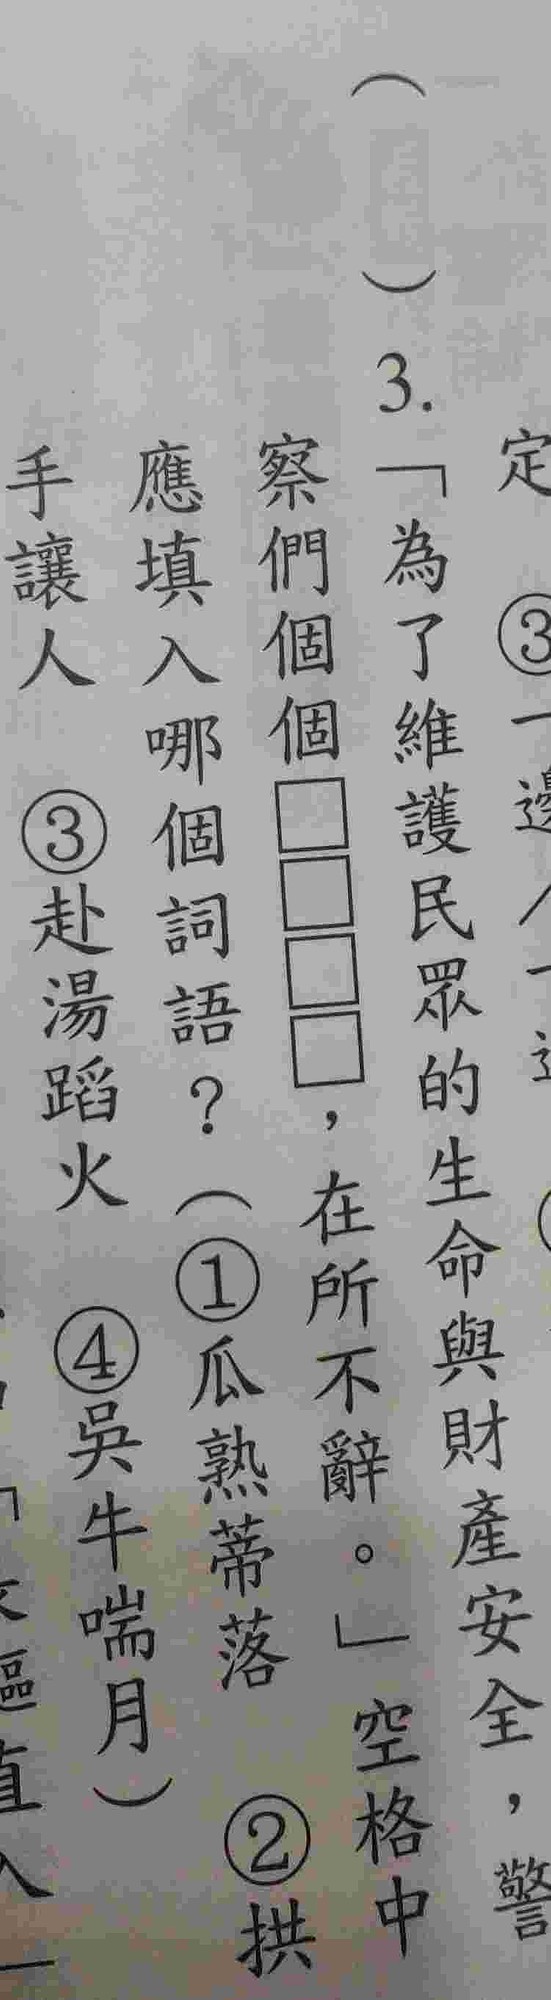 定 ③一邊
( )3.「為了維護民眾的生命與財產安全，警
察們個個□□□□，在所不辭。」空格中
應填入哪個詞語？（①瓜熟蒂落 ②拱
手讓人 ③赴湯蹈火 ④吳牛喘月）